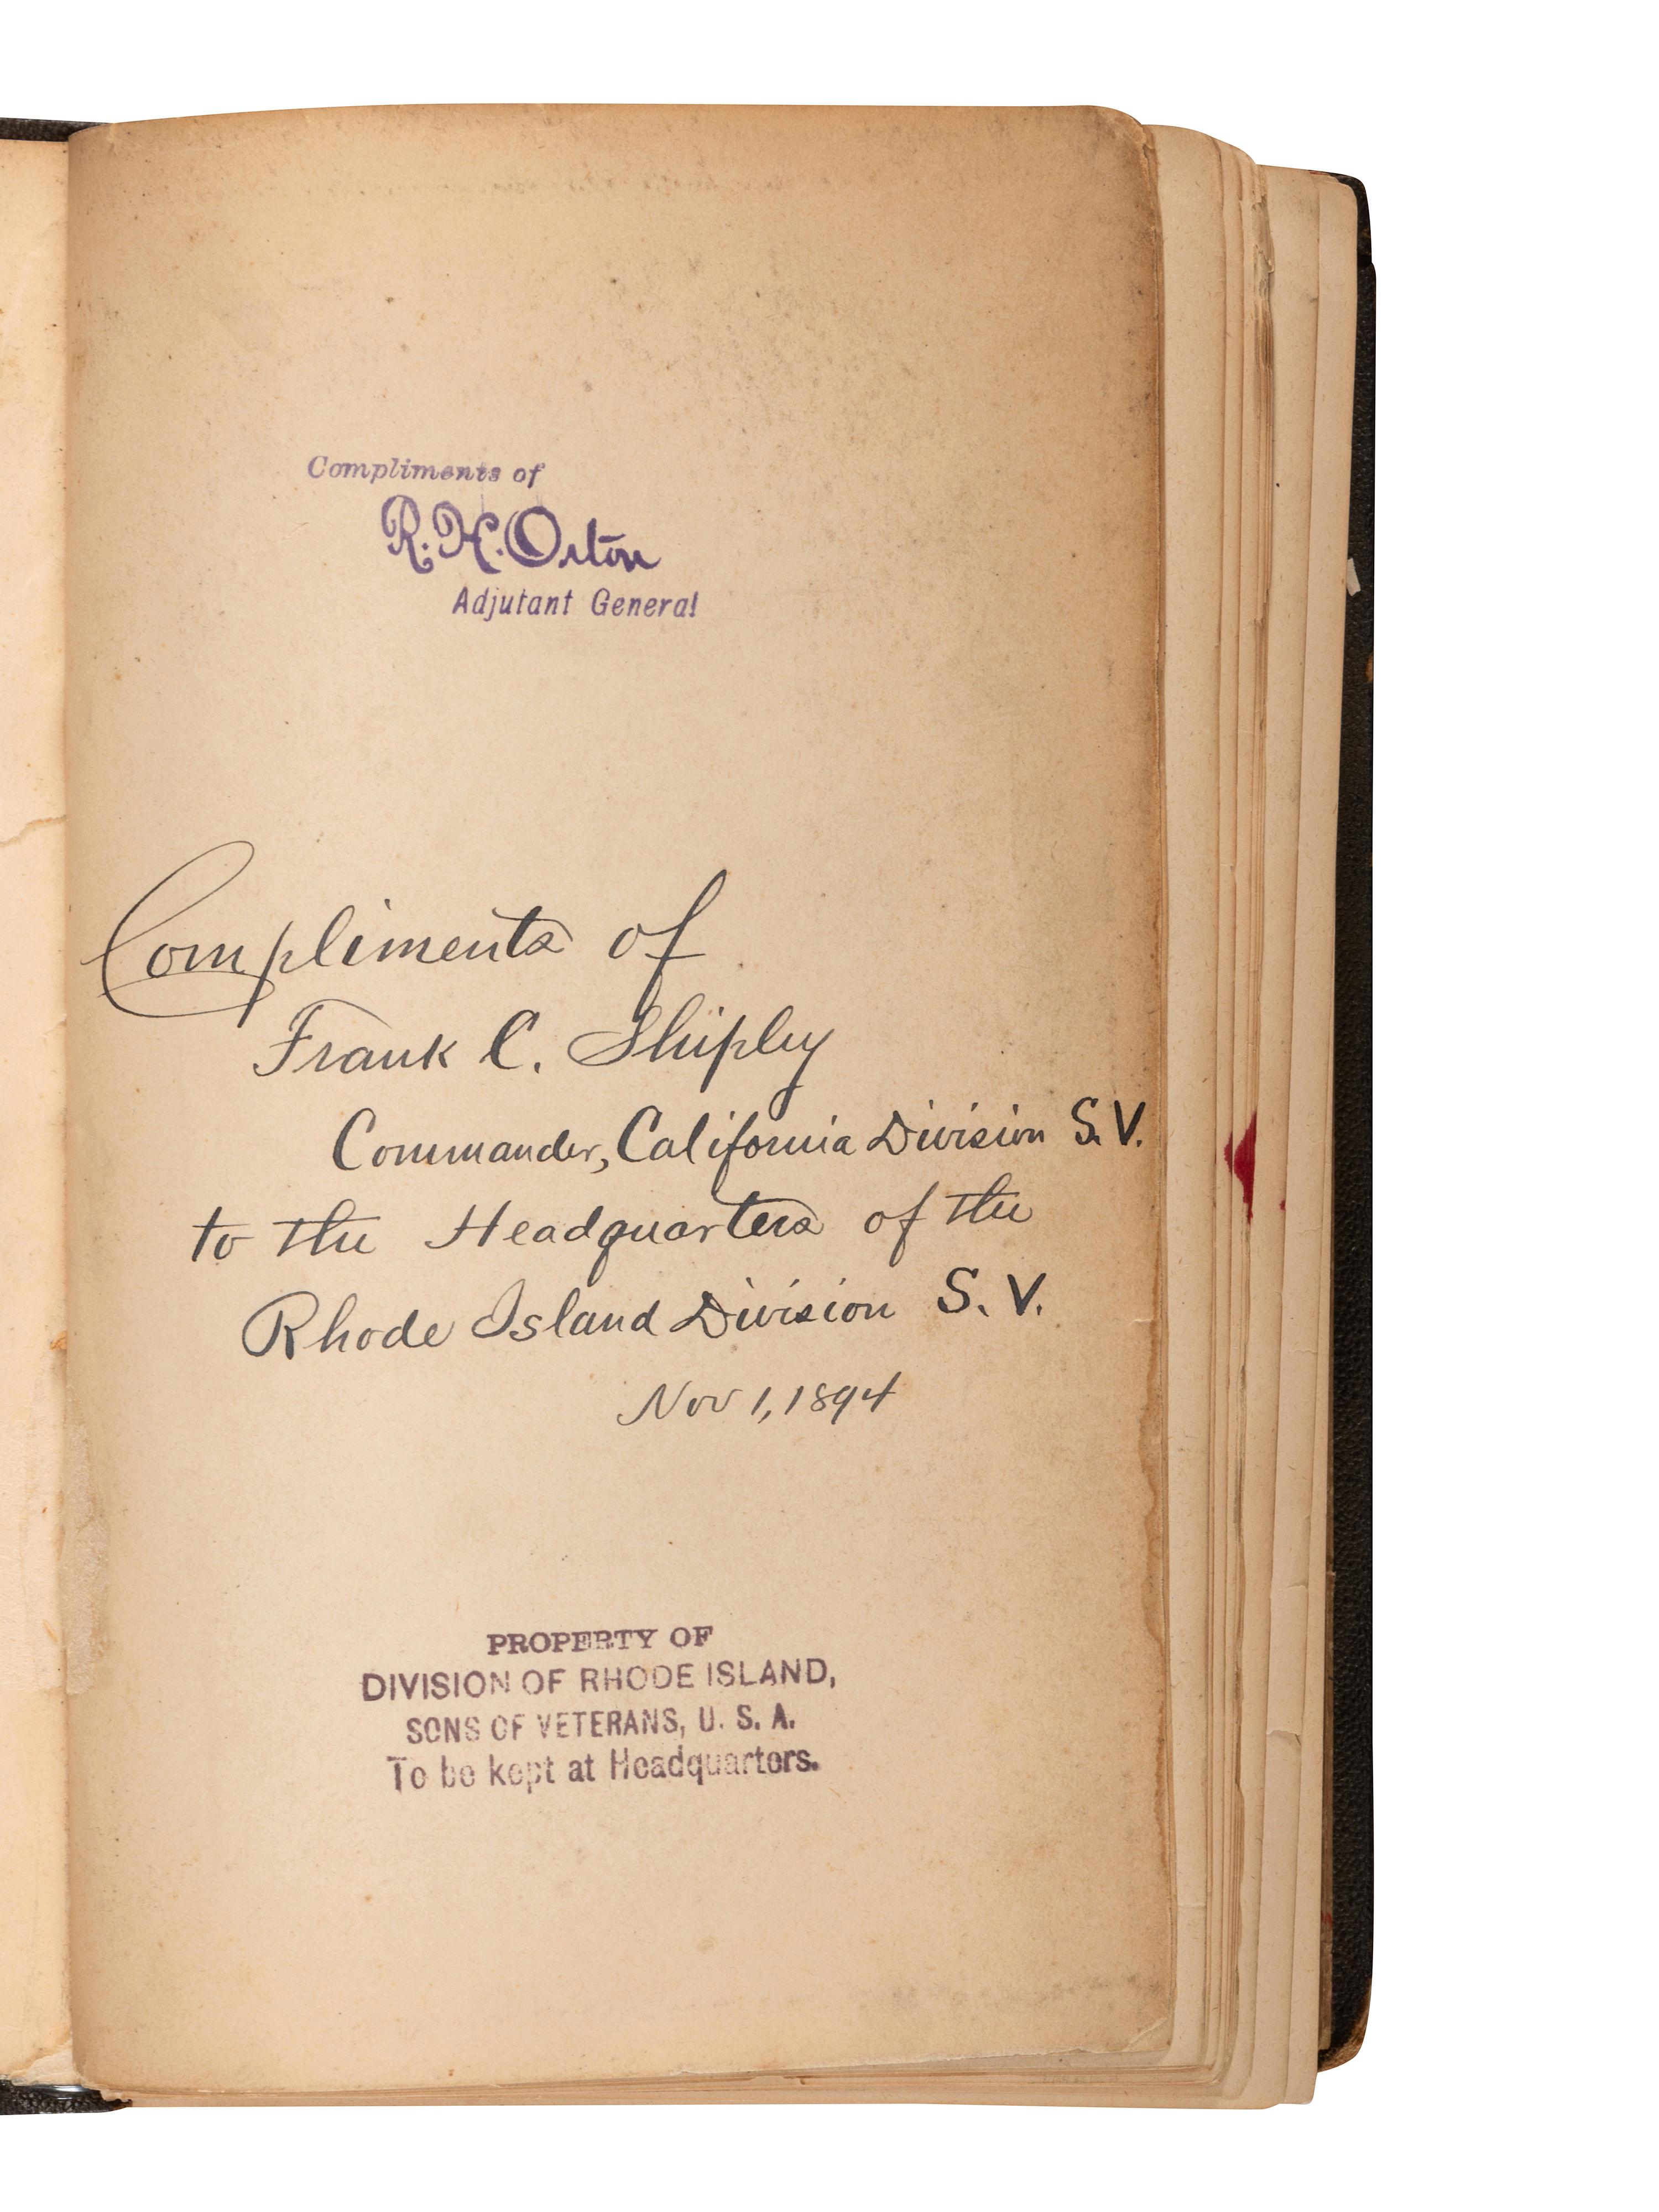 Compliments of
R. H. Orton
Adjutant General
Compliments of
Frank C. Shipley
Commander, California Division S. V.
to the Headquarters of the
Rhode Island Division S. V.
Nov 1, 1894
PROPERTY OF
DIVISION OF RHODE ISLAND,
SONS OF VETERANS, U. S. A.
To be kept at Headquarters.